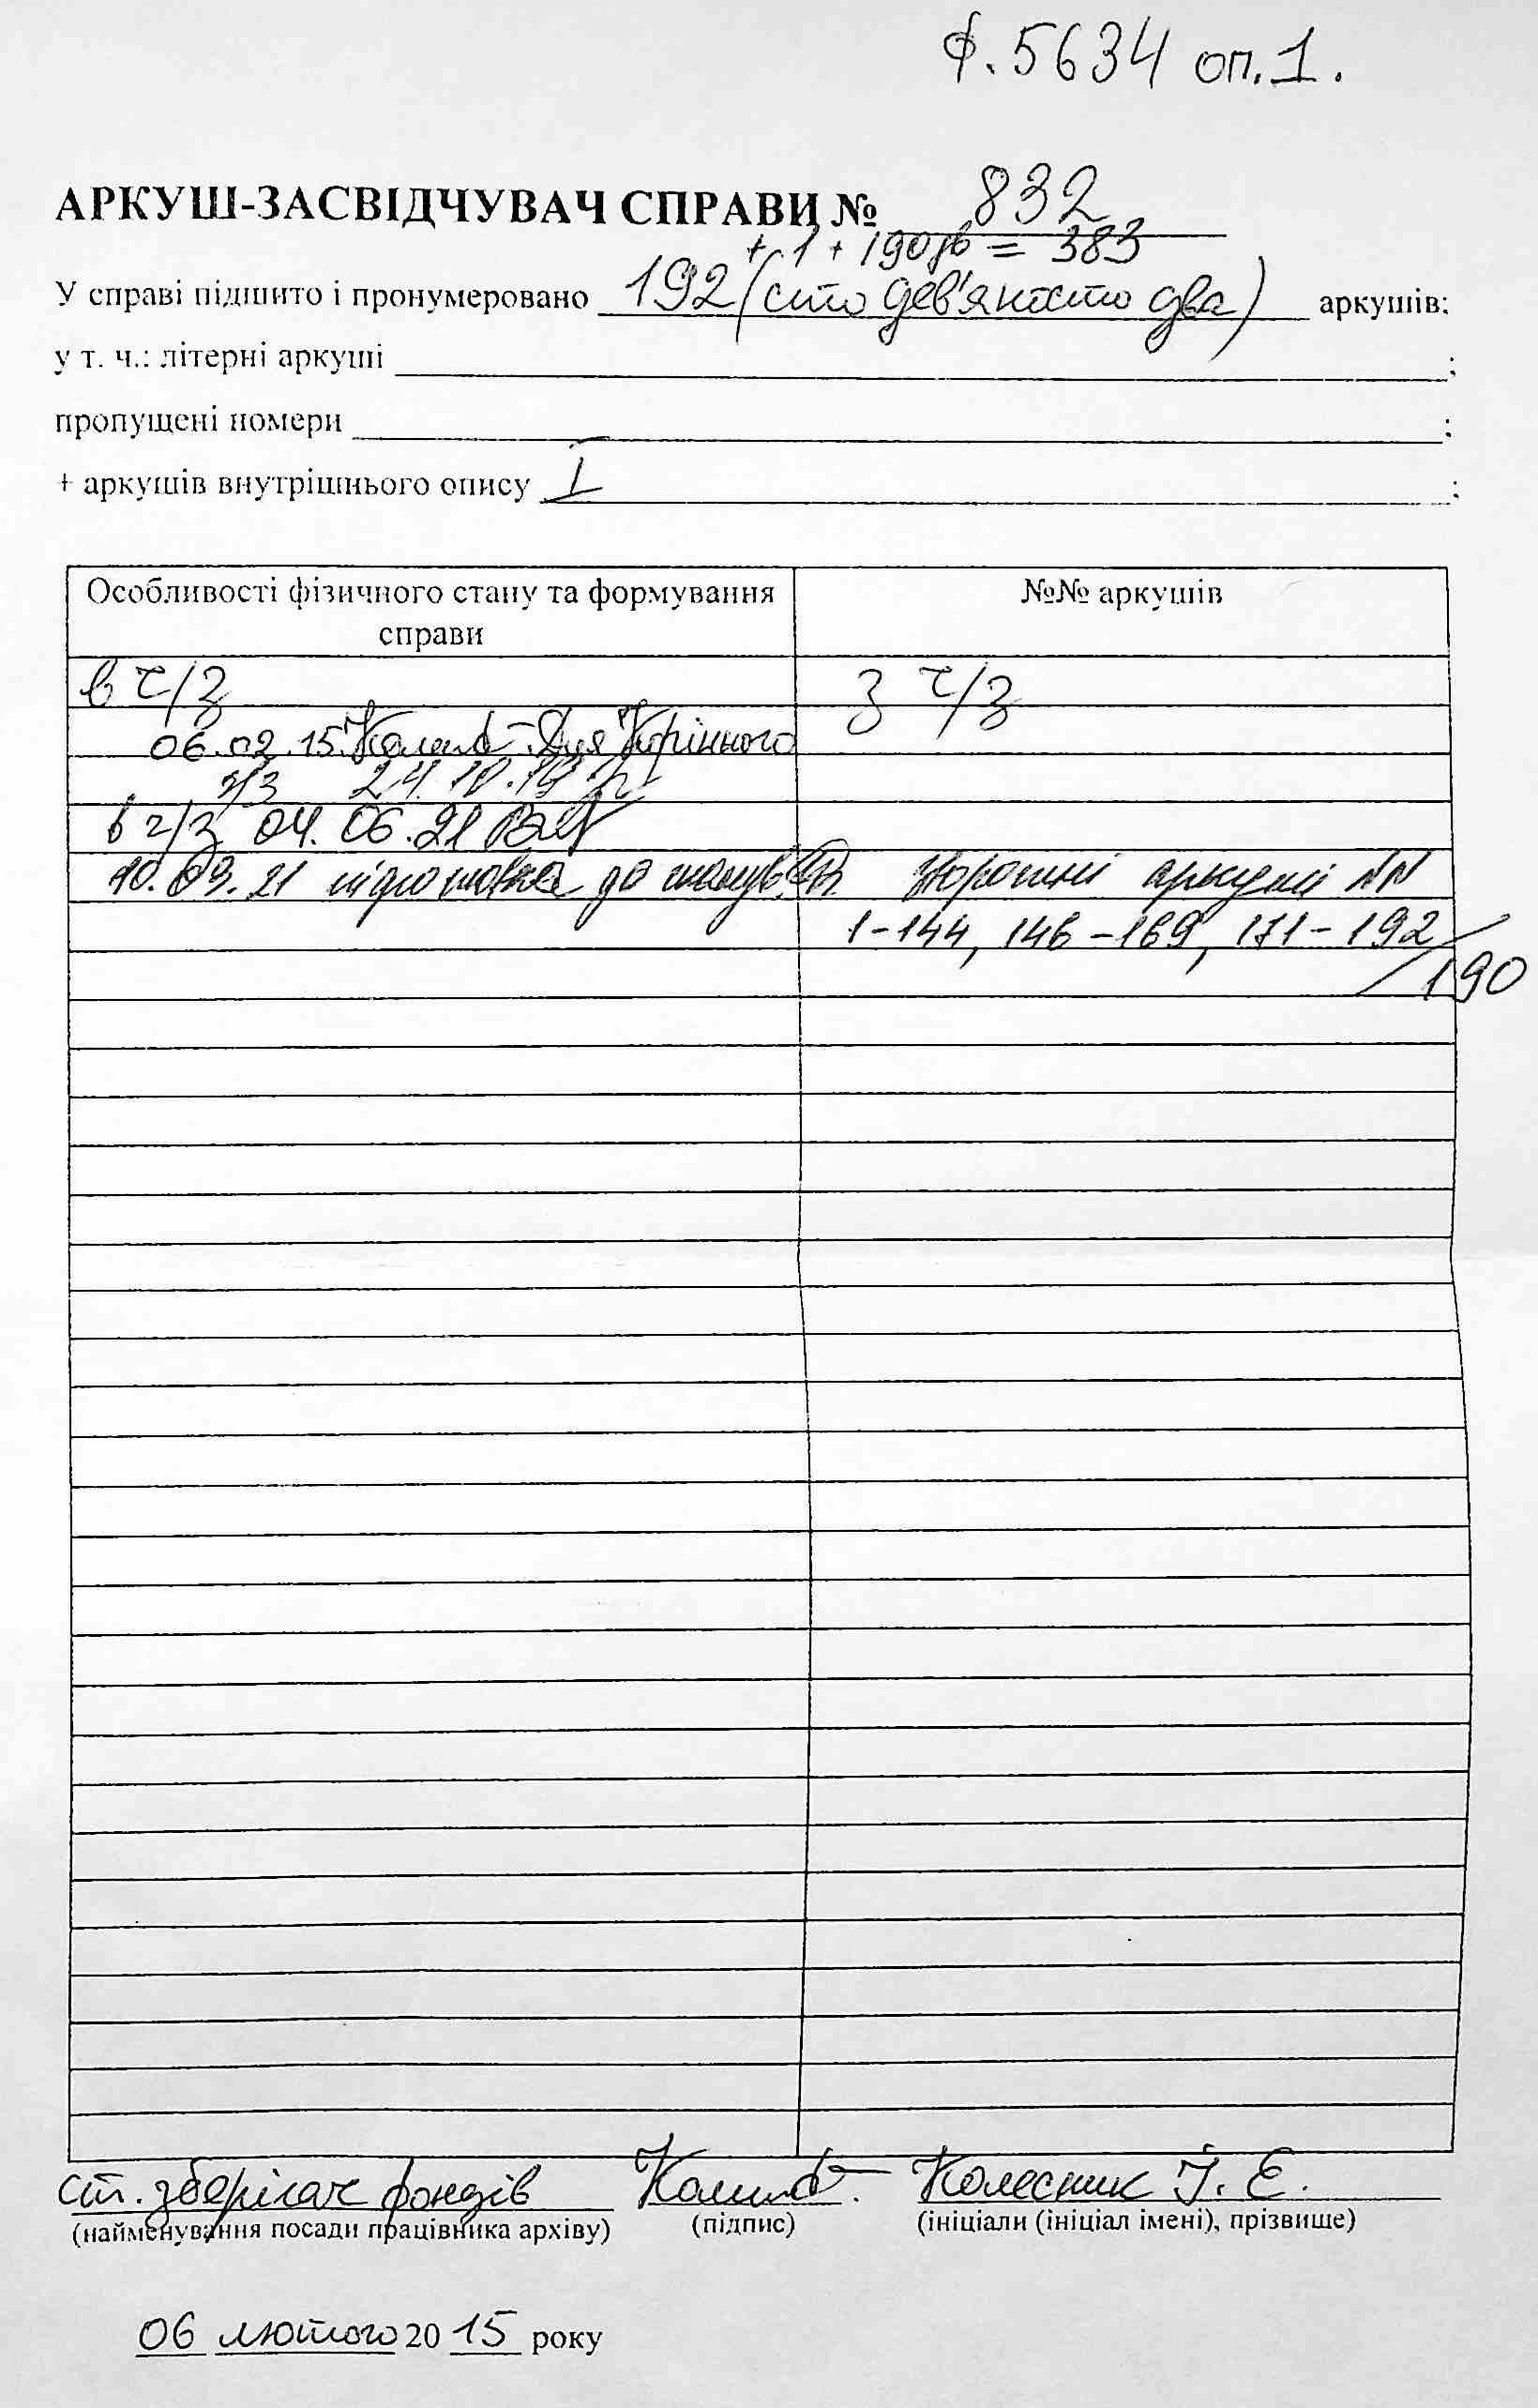 ф. 5634 оп. 1.
АРКУШ-ЗАСВІДЧУВАЧ СПРАВИ № 832
+ 1 + 190 зв = 383
У справі підшито і пронумеровано 192 (сто дев'яносто два) аркушів;
у т. ч.: літерні аркуші ;
пропущені номери ;
+ аркушів внутрішнього опису 1 ;
Особливості фізичного стану та формування справи
№№ аркушів
в ч/з
З ч/з
06.02.15. Для Корінного
ч/з 24.10.19
в ч/з 04.06.21
10.09.21 підготовка до сканув. Зворотні аркуші NN
1-144, 146-169, 171-192/
/190
ст. зберігач фондів Колесник І. Є.
(найменування посади працівника архіву) (підпис) (ініціали (ініціал імені), прізвище)
06 лютого 20 15 року